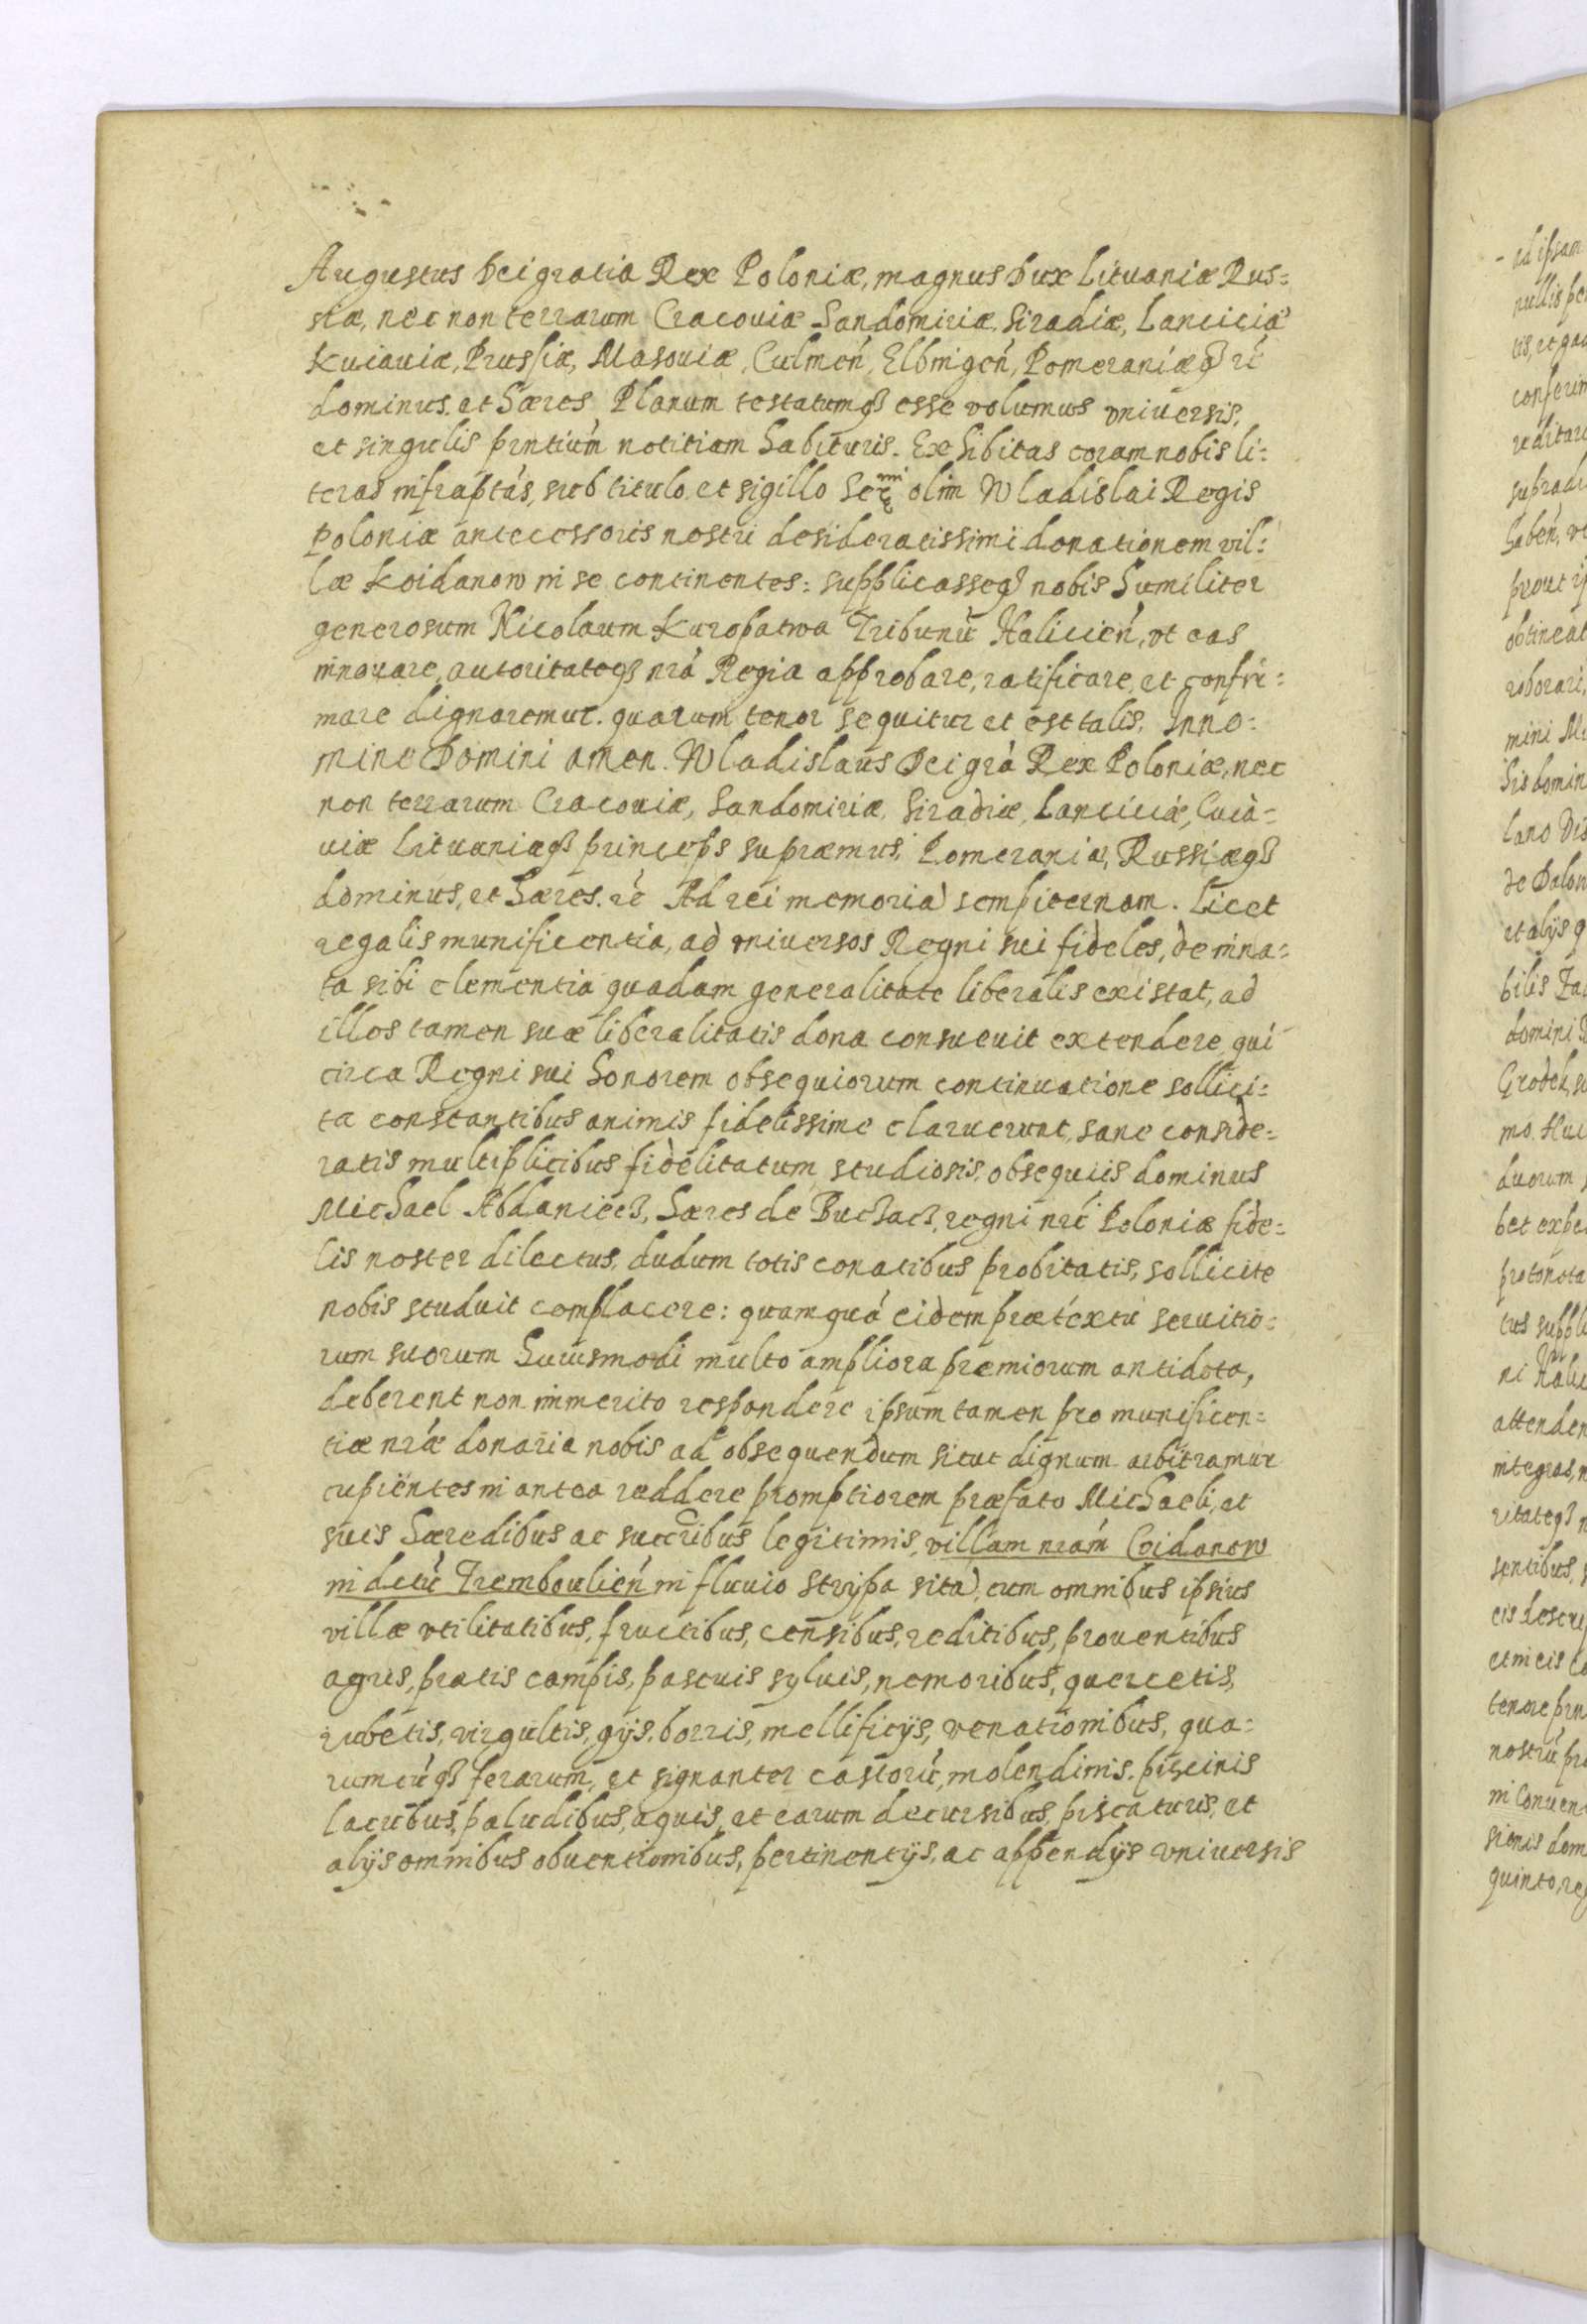 Augustus Dei gratia Rex Poloniæ, magnus Dux Lituaniæ Rus=
siæ, nec non terrarum Cracoviæ Sandomiriæ, Siradiæ, Lanciciæ
Kuiaviæ, Prussiæ, Masoviæ, Culmeń, Elbingeń, Pomeraniæq́ꝫ rć
dominus, et hæres. Planum testatumqꝫ esse volumus vniversis,
et singulis pñtium notitiam habituris. Exhibitas coram nobis li=
teras infraptas, sub titulo et sigillo Serᵐⁱ olim Wladislai Regis
Poloniæ antecessoris nostri desideratissimi donationem vil=
læ Koidanow in se continentes: supplicasseqꝫ nobis humiliter
generosum Nicolaum Kuropatwa Tribunū Halicień, vt eas
innovare, autoritateqꝫ nrā Regia approbare, ratificare, et confir=
mare dignaremur. quarum tenor sequitur et est talis, Inno=
mine Domini amen. Wladislaus Dei grā Rex Poloniæ, nec
non terrarum Cracoviæ, Sandomiriæ, Siradiæ, Lanciciæ, Cuia=
viæ Lituaniæqꝫ princeps supræmus, Pomeraniæ, Russiæqꝫ
dominus, et hæres. rć Ad rei memoriā sempiternam. Licet
regalis munificentia, ad vniversos Regni sui fideles, de inna=
ta sibi clementia quadam generalitate liberalis existat, ad
illos tamen suæ liberalitatis dona consuevit extendere, qui
circa Regni sui honorem obsequiorum continuatione sollici=
ta constantibus animis fidelissime claruerunt, sane conside=
ratis multiplicibus fidelitatum, studiosis, obsequiis dominus
Michael Abdaniecz, hæres de Buczacz, regni nrī Poloniæ fide=
lis noster dilectus, dudum totis conatibus probitatis, sollicite
nobis studuit complacere: quamquā eidem prætextu servitio=
rum suorum huiusmodi multo ampliora præmiorum antidota,
deberent non immerito respondere ipsum tamen pro munificen=
tiæ nrǽ donaria nobis ad obsequendum sicut dignum arbitramur
cupientes in antea reddere promptiorem præfato Michaeli, et
suis hæredibus ac succribus legitimis, villam nram Coidanow
in dctū Tremboulień in fluvio Strypa sitā, cum omnibus ipsius
villæ vtilitatibus, fructibus, censibus, reditibus, proventibus
agris, pratis campis, pascuis sylvis, nemoribus, quercetis,
rubetis, virgultis, gijs, borris, mellificijs, venationibus, qua=
rumcūqꝫ ferarum, et signanter castorū, molendinis, piscinis
lacubus, paludibus, aquis, et earum decursibus, piscaturis, et
alijs omnibus obventionibus, pertinentijs, ac appendijs vniversis